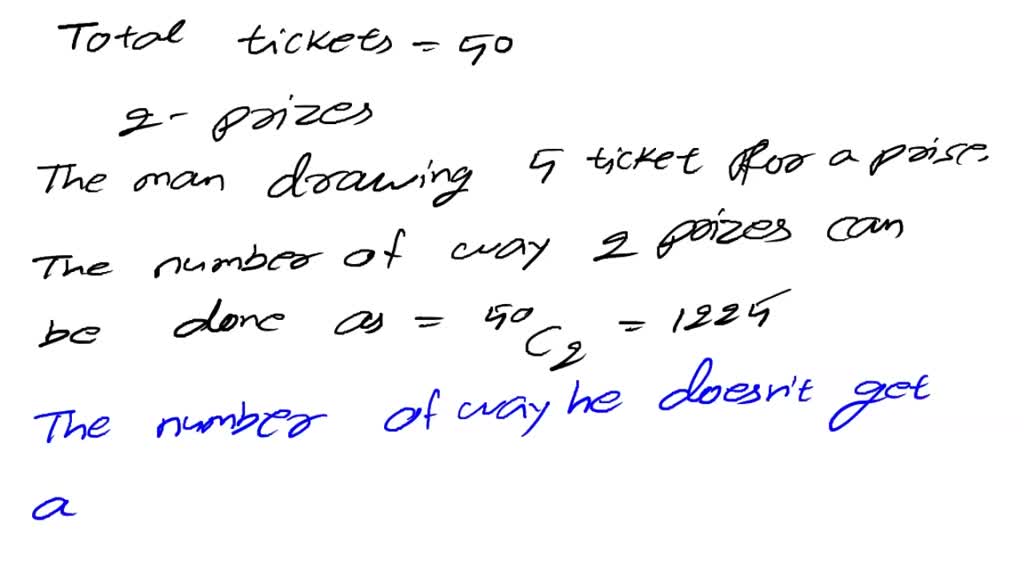 Total tickets = 50
2- prizes
The man drawing 5 ticket for a prise.
The number of way 2 prizes can
be done as = 50C2 = 1225
The number of way he doesn't get
a